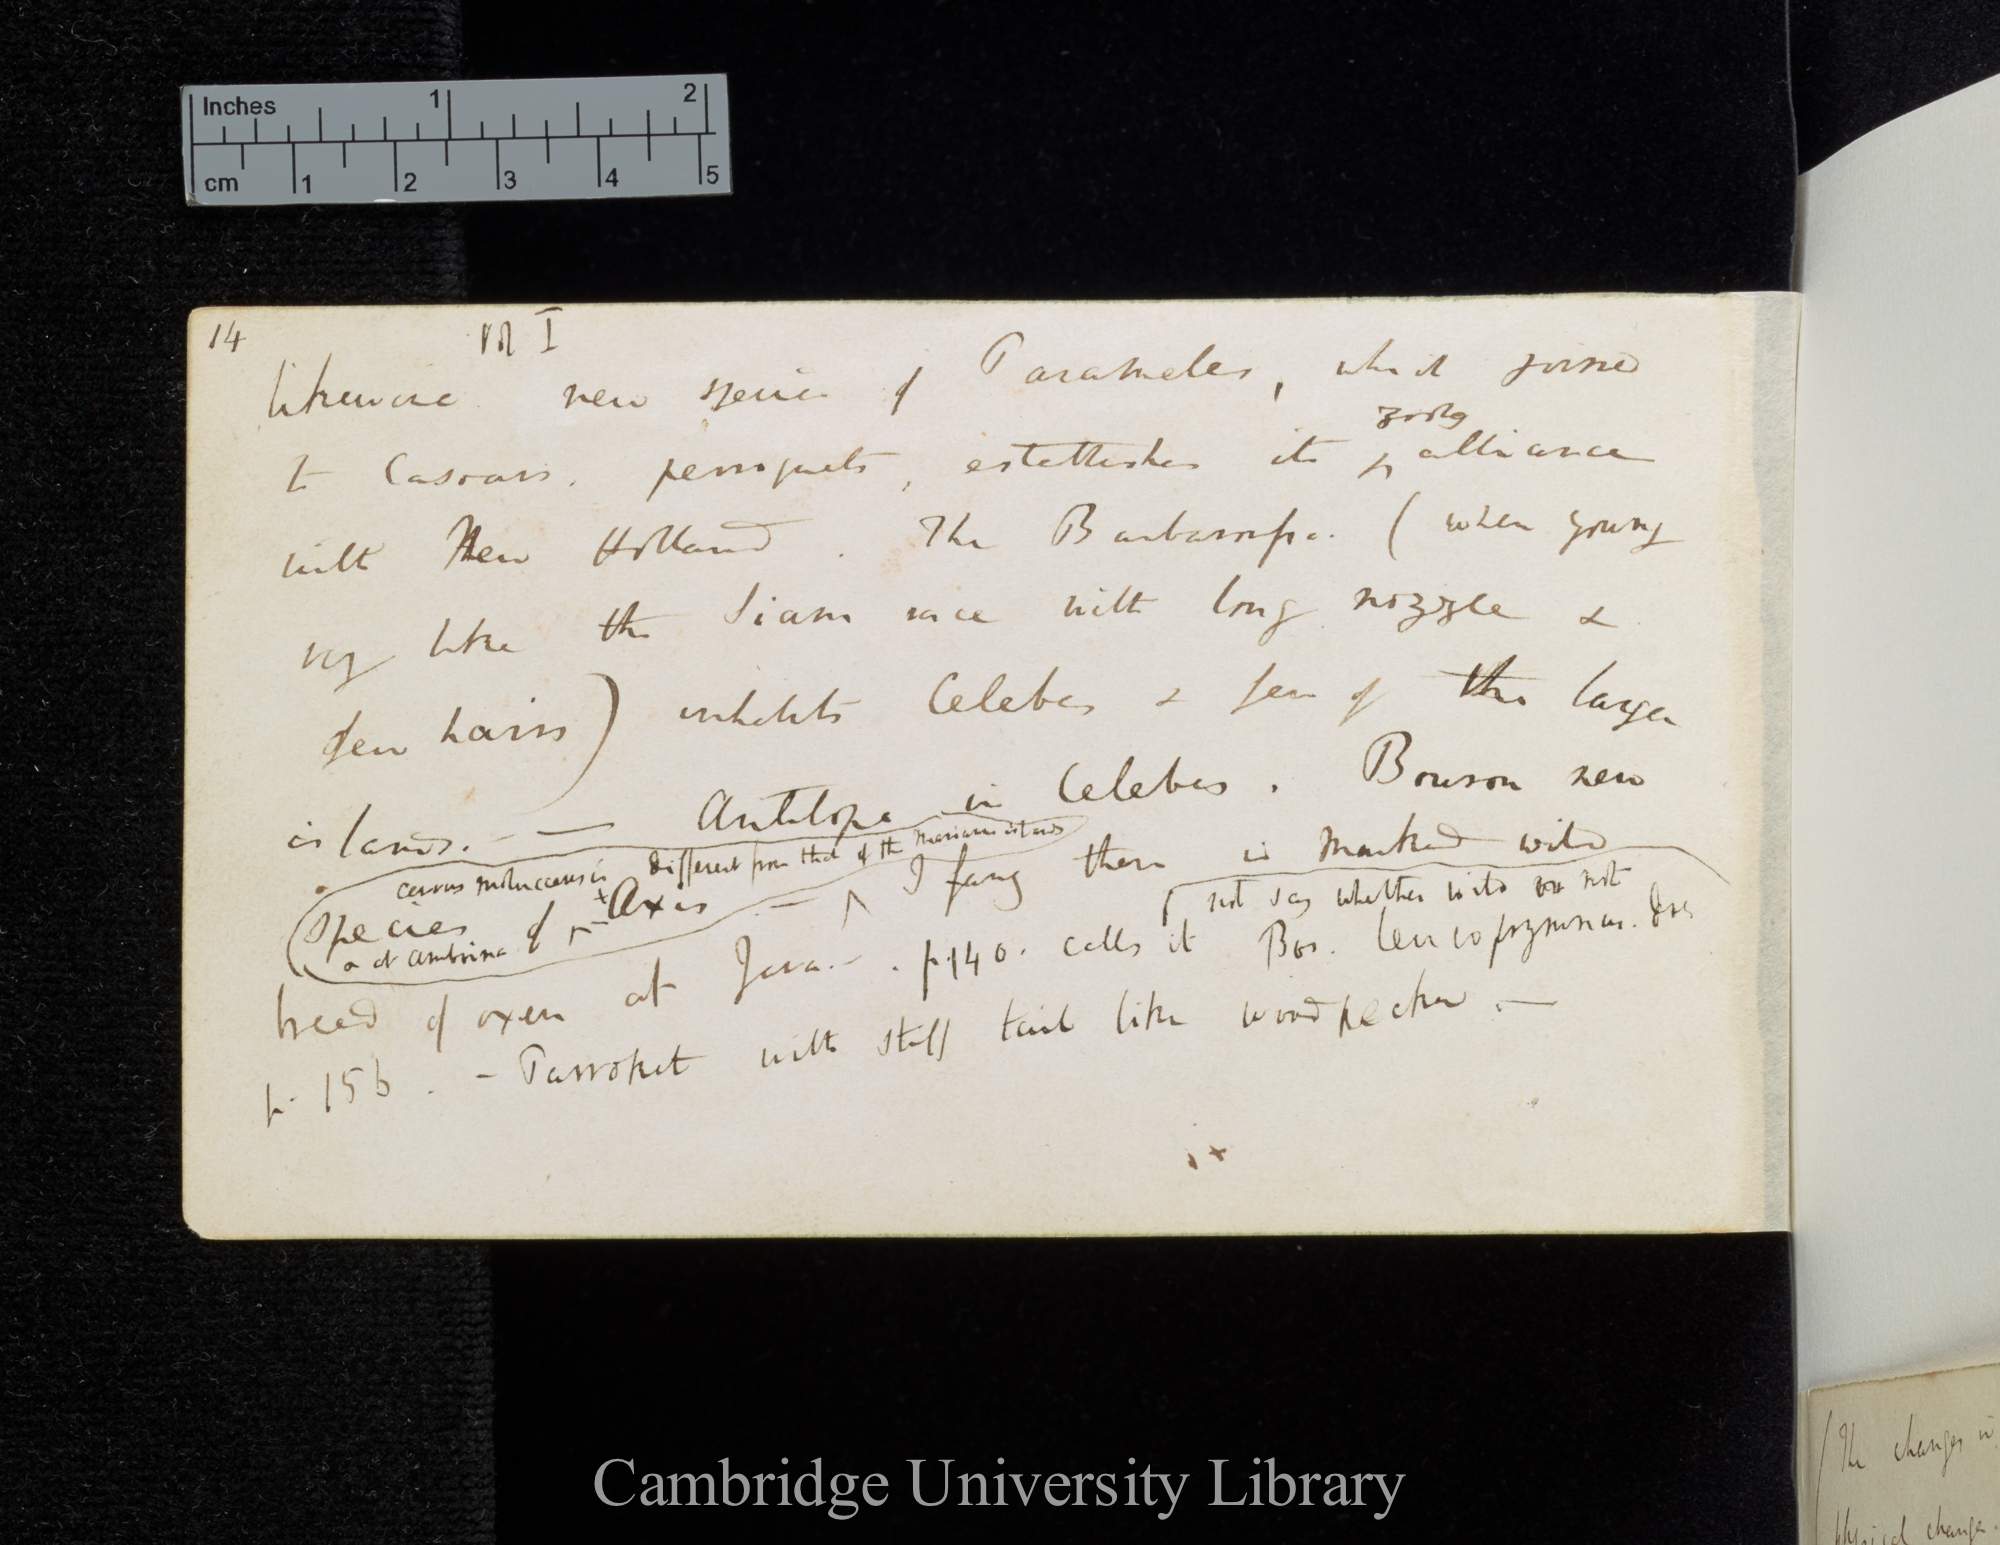 Inches 1 2
cm 1 2 3 4 5
14 Vol I
likewise new species of Parameles, which joined
to Casoars, perroquets, establishes its zoolog alliance
with New Holland. The Barbaroussa. (when young
very like the Siam race with long nozzle &
few hairs) inhabits Celebes & few of the larger
islands. — — Antelope in Celebes. Bouron new
cervus moluccensis different from that of the Mariana islands
species of Axis — I fancy there is marked wild
or at Amboina
not say whether wild or not
breed of oxen at Java. — . p. 140. calls it Bos. leucoprymnus. Does
p. 156. — Parroket with stiff tail like woodpecker. —
Cambridge University Library
(The changes in
physical changes.